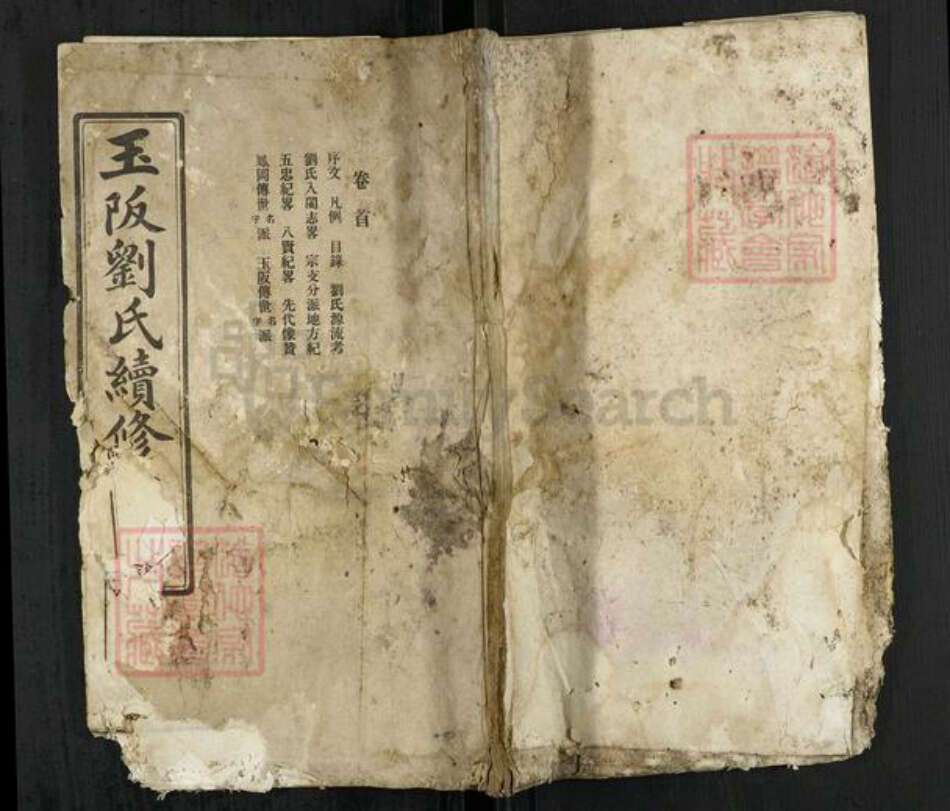 卷首
序文 凡例 目錄 劉氏源流考
劉氏入閩志畧 宗支分派地方紀
五忠紀畧 八賢紀畧 先代像贊
鳳岡傳世名字派 玉阪傳世名字派
玉阪劉氏續修
FamilySearch